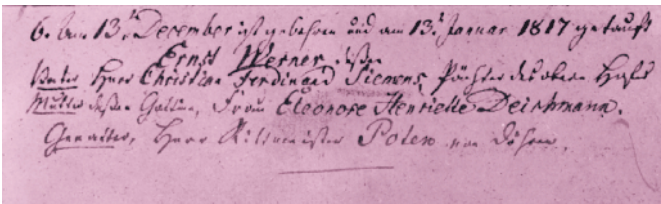 6. Am 13t. December ist gebohren und am 13t. Januar 1817 getauft
Ernst Werner, deßen
Vater Herr Christian Ferdinand Siemens, Pächter des obern Hofes
Mutter deßen Gattin, Frau Eleonore Henriette Deichmann.
Gevatter, Herr Rittmeister Poten von Döhren.